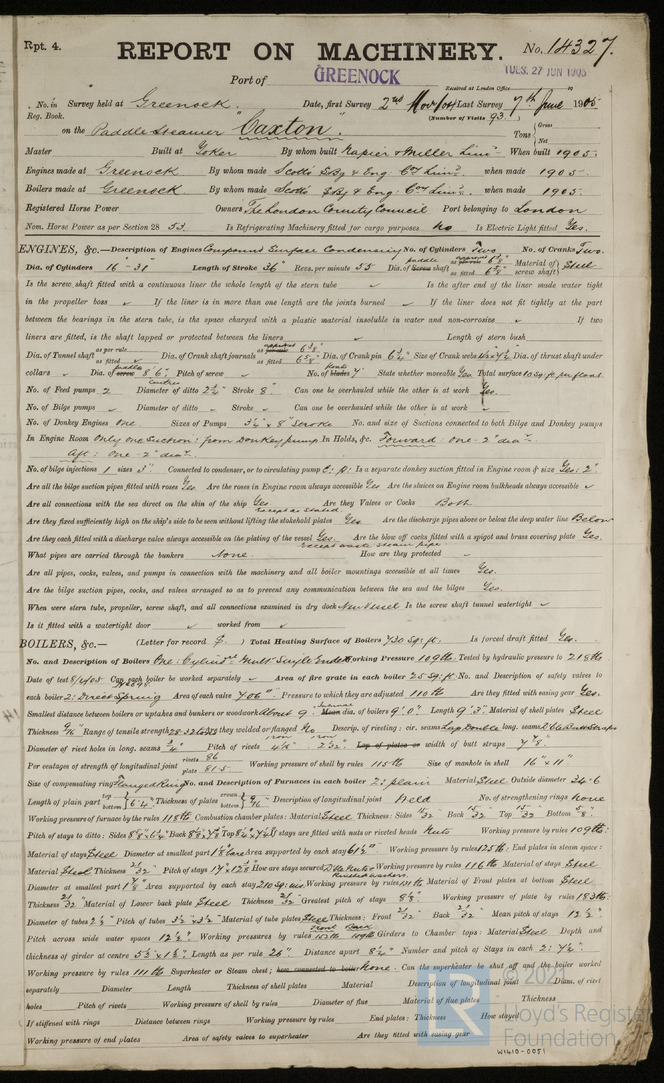 Rpt. 4.
REPORT ON MACHINERY. No. 14327.
Port of GREENOCK
Received at London Office TUES. 27 JUN 1905
No. in Survey held at Greenock. Date, first Survey 2nd Nov/04 Last Survey 7th June 1905
Reg. Book. (Number of Visits 93.)
on the Paddle Steamer "Caxton". Tons { Gross Net
Master Built at Yoker By whom built Napier & Miller Limd. When built 1905.
Engines made at Greenock By whom made Scotts S.Bg & Eng. Coy Limd. when made 1905.
Boilers made at Greenock By whom made Scotts S.Bg & Eng. Coy Limd. when made 1905.
Registered Horse Power Owners The London County Council Port belonging to London
Nom. Horse Power as per Section 28 53 Is Refrigerating Machinery fitted for cargo purposes No Is Electric Light fitted Yes.
ENGINES, &c.—Description of Engines Compound Surface Condensing No. of Cylinders Two No. of Cranks Two.
Dia. of Cylinders 16" 31" Length of Stroke 36" Revs. per minute 55 Dia. of Screw paddle shaft as approved 6 3/8" as fitted 6 5/8" Material of screw shaft Steel
Is the screw shaft fitted with a continuous liner the whole length of the stern tube Is the after end of the liner made water tight
in the propeller boss If the liner is in more than one length are the joints burned If the liner does not fit tightly at the part
between the bearings in the stern tube, is the space charged with a plastic material insoluble in water and non-corrosive If two
liners are fitted, is the shaft lapped or protected between the liners Length of stern bush
Dia. of Tunnel shaft as per rule as fitted Dia. of Crank shaft journals as approved 6 3/8" as fitted 6 5/8" Dia. of Crank pin 6 3/4" Size of Crank webs Dia. of thrust shaft under
collars Dia. of screw paddle centres 8'6" Pitch of screw No. of blades floats 7 State whether moveable Yes Total surface 10 sq. ft. per float
No. of Feed pumps 2 Diameter of ditto 2 1/2" Stroke 8" Can one be overhauled while the other is at work Yes.
No. of Bilge pumps Diameter of ditto Stroke Can one be overhauled while the other is at work
No. of Donkey Engines One Sizes of Pumps 3 1/2" x 8" Stroke No. and size of Suctions connected to both Bilge and Donkey pumps
In Engine Room Only one Suction: from Donkey pump In Holds, &c. Forward: one - 2" diar.
Aft: one - 2" diar.
No. of bilge injections 1 sizes 3" Connected to condenser, or to circulating pump C. P. Is a separate donkey suction fitted in Engine room & size Yes: 2"
Are all the bilge suction pipes fitted with roses Yes Are the roses in Engine room always accessible Yes Are the sluices on Engine room bulkheads always accessible
Are all connections with the sea direct on the skin of the ship Yes Are they Valves or Cocks Both
except as stated.
Are they fixed sufficiently high on the ship's side to be seen without lifting the stokehold plates Yes Are the discharge pipes above or below the deep water line Below
Are they each fitted with a discharge valve always accessible on the plating of the vessel Yes Are the blow off cocks fitted with a spigot and brass covering plate Yes.
except waste steam pipe
What pipes are carried through the bunkers None. How are they protected
Are all pipes, cocks, valves, and pumps in connection with the machinery and all boiler mountings accessible at all times Yes.
Are the bilge suction pipes, cocks, and valves arranged so as to prevent any communication between the sea and the bilges Yes.
When were stern tube, propeller, screw shaft, and all connections examined in dry dock New Vessel Is the screw shaft tunnel watertight
Is it fitted with a watertight door worked from
BOILERS, &c.— (Letter for record S.) Total Heating Surface of Boilers 730 sq. ft. Is forced draft fitted Yes.
No. and Description of Boilers One: Cylindl Mult. Single Ended Working Pressure 109 lb Tested by hydraulic pressure to 218 lb
Date of test 5/4/05 Can each boiler be worked separately Area of fire grate in each boiler 25 sq. ft. No. and Description of safety valves to
each boiler 2: Direct Spring Area of each valve 7.06" Pressure to which they are adjusted 110 lb Are they fitted with easing gear Yes.
Smallest distance between boilers or uptakes and bunkers or woodwork About 9" Mean internal dia. of boilers 9'.0" Length 9'.3" Material of shell plates Steel
Thickness 9/16 Range of tensile strength 28-32 tons Are they welded or flanged No Descrip. of riveting: cir. seams Lap Double long. seams Butt Straps
Diameter of rivet holes in long. seams 3/4" Pitch of rivets Lap of plates or width of butt straps 7 7/8"
Per centages of strength of longitudinal joint rivets 86 plate 81.5 Working pressure of shell by rules 115 lb Size of manhole in shell 16" x 11"
Size of compensating ring Flanged Ring No. and Description of Furnaces in each boiler 2: plain Material Steel Outside diameter 34.6
Length of plain part top bottom 6'4" Thickness of plates crown bottom 9/16 Description of longitudinal joint Weld No. of strengthening rings None
Working pressure of furnace by the rules 118 lb Combustion chamber plates: Material Steel Thickness: Sides 15/32 Back 15/32 Top 15/32 Bottom 5/8".
Pitch of stays to ditto: Sides Back Top If stays are fitted with nuts or riveted heads Nuts Working pressure by rules 109 lb:
Material of stays Steel Diameter at smallest part Area supported by each stay 61 1/2" Working pressure by rules 125 lb: End plates in steam space:
Material Steel Thickness 21/32 Pitch of stays How are stays secured Dble Nuts & Riveted washers. Working pressure by rules 116 lb Material of stays Steel
Diameter at smallest part 1 7/8" Area supported by each stay 210 sq. ins. Working pressure by rules Material of Front plates at bottom Steel
Thickness 21/32 Material of Lower back plate Steel Thickness 21/32 Greatest pitch of stays 8 5/8" Working pressure of plate by rules 183 lb:
Diameter of tubes 2 1/2" Pitch of tubes 3 1/2" x 3 1/2" Material of tube plates Steel Thickness: Front 21/32 Back 21/32 Mean pitch of stays
Pitch across wide water spaces 12 1/2" Working pressures by rules Front Back 109 lb Girders to Chamber tops: Material Steel Depth and
thickness of girder at centre 5 1/2" x 1 5/8" Length as per rule 26" Distance apart 8 1/4" Number and pitch of Stays in each 2: 7 1/4".
Working pressure by rules 111 lb Superheater or Steam chest; how connected to boiler None. Can the superheater be shut off and the boiler worked
separately Diameter Length Thickness of shell plates Material Description of longitudinal joint Diam. of rivet
holes Pitch of rivets Working pressure of shell by rules Diameter of flue Material of flue plates Thickness
If stiffened with rings Distance between rings Working pressure by rules End plates: Thickness How stayed
Working pressure of end plates Area of safety valves to superheater Are they fitted with easing gear
© 2021
LR
Lloyd's Register
Foundation
W1410-0051